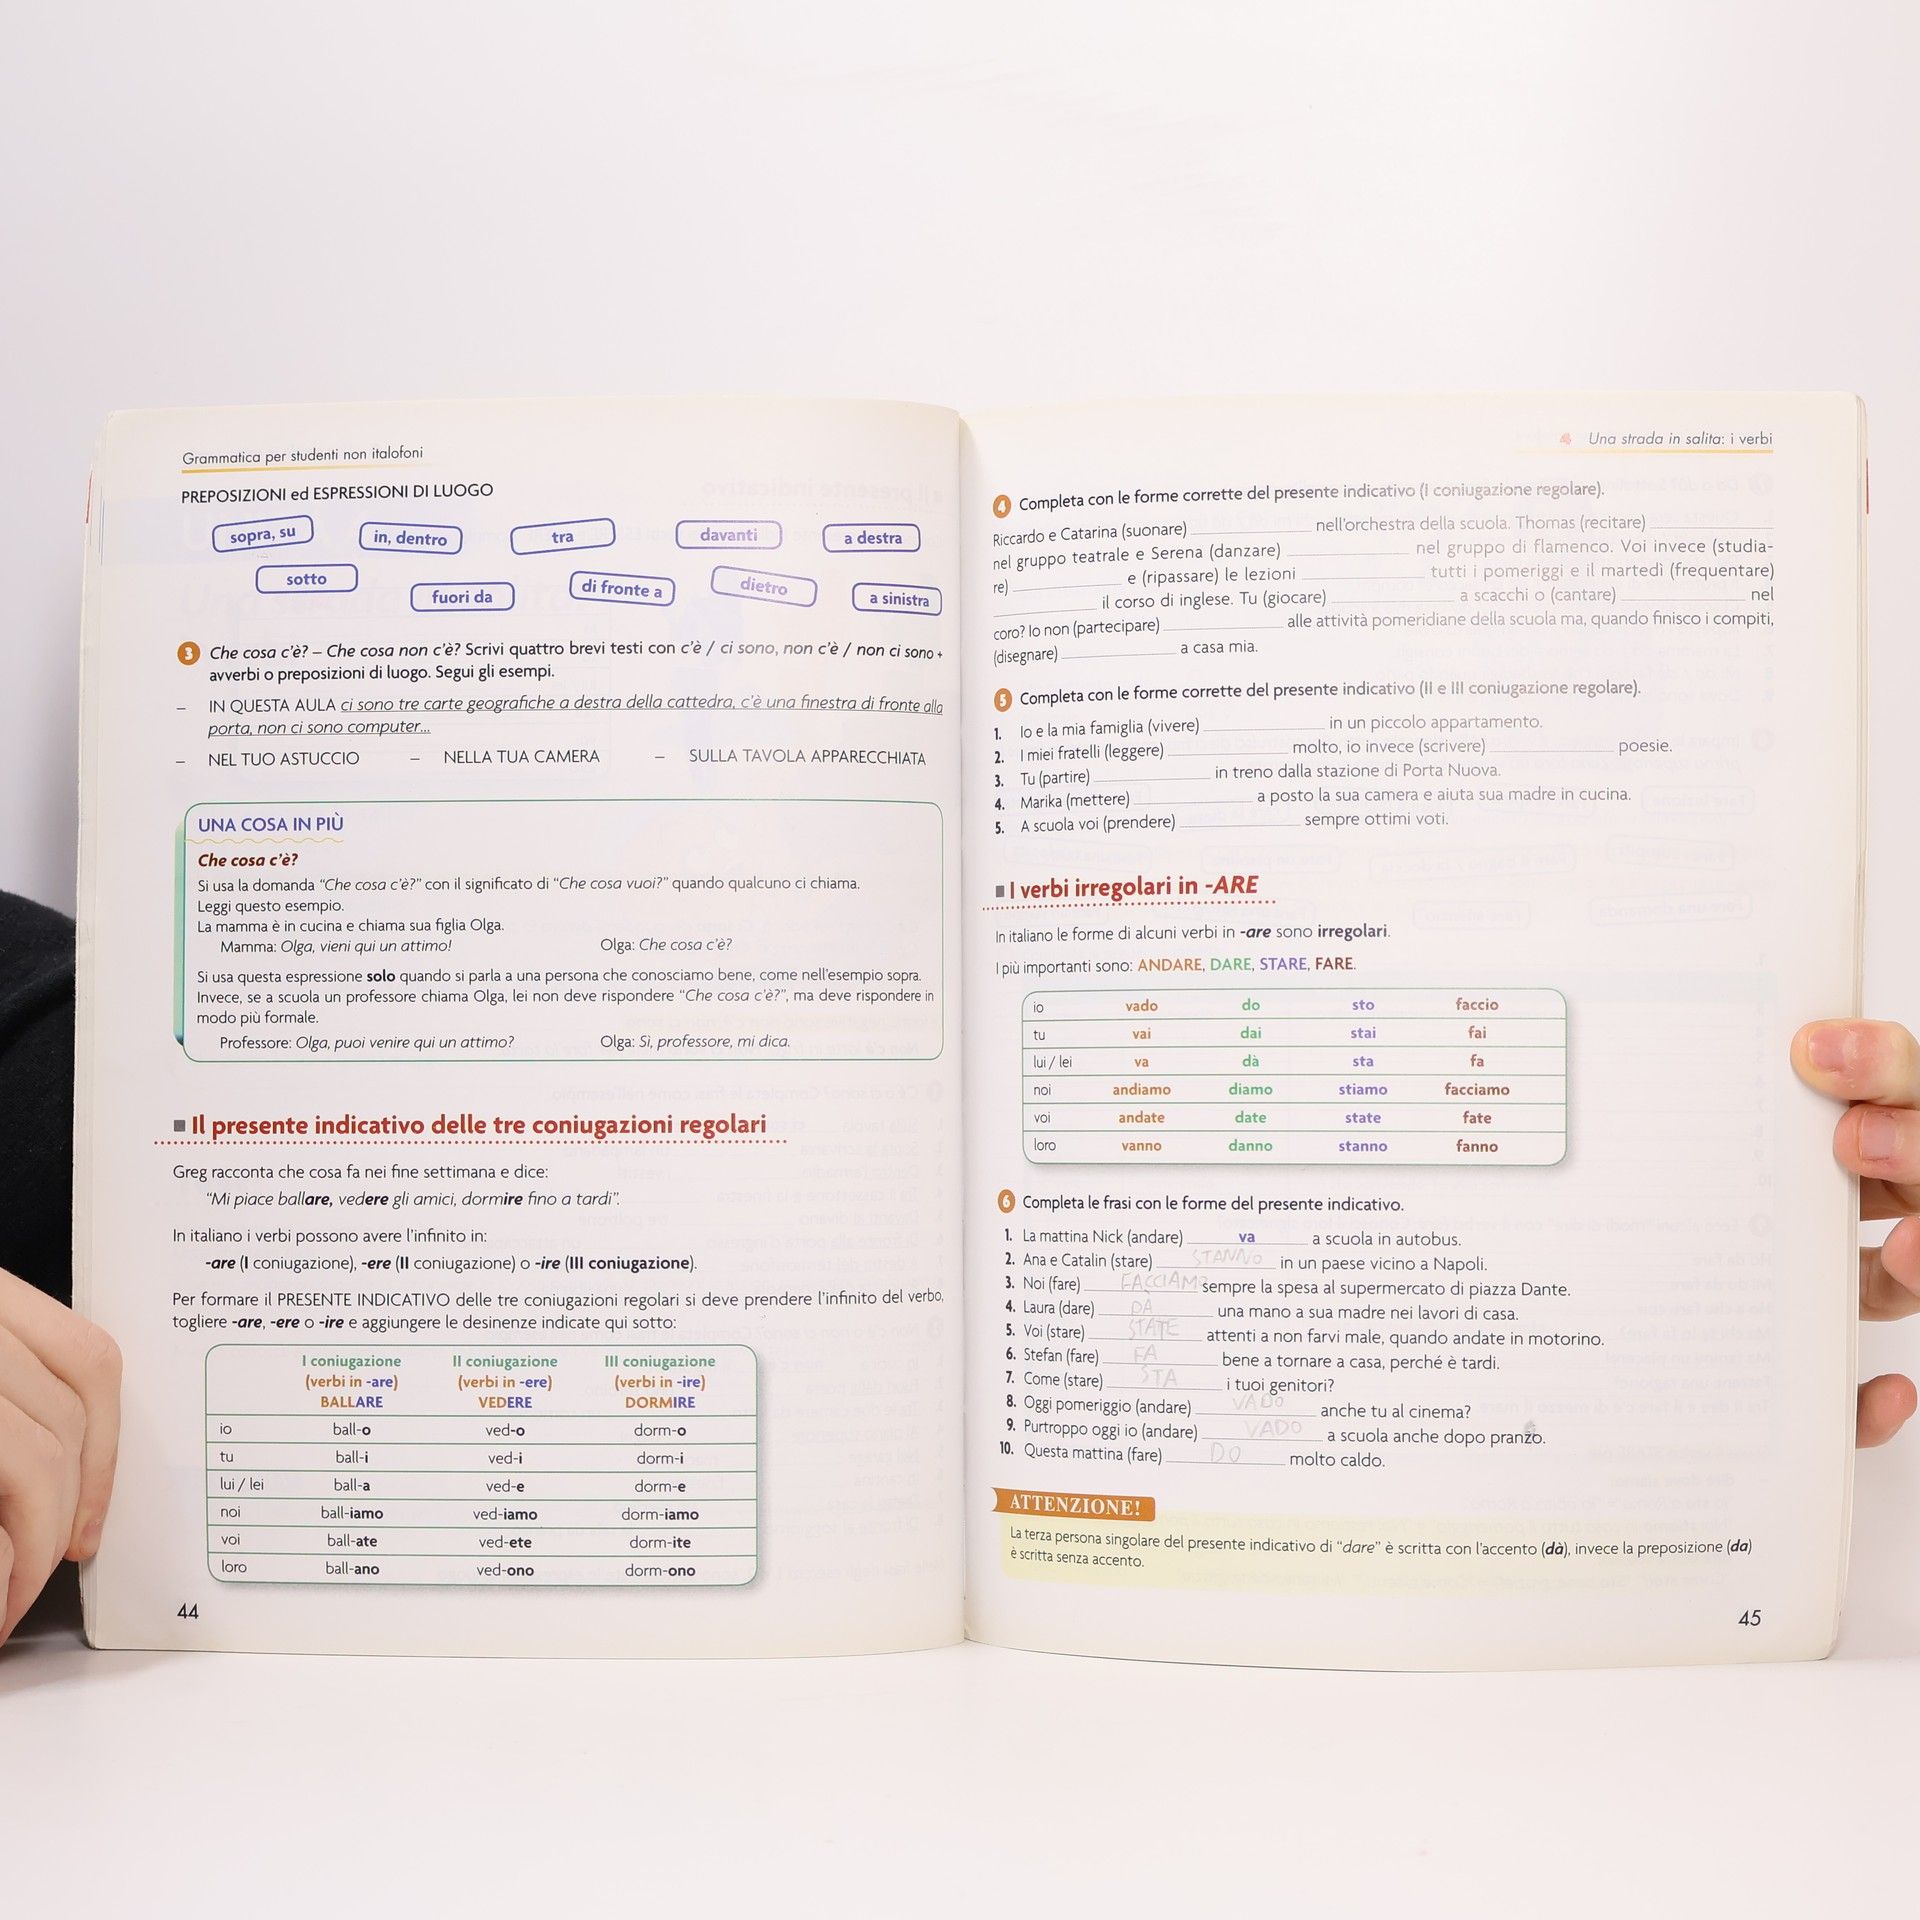 Grammatica per studenti non italofoni
PREPOSIZIONI ed ESPRESSIONI DI LUOGO
sopra, su in, dentro tra davanti a destra
sotto fuori da di fronte a dietro a sinistra
3 Che cosa c'è? – Che cosa non c'è? Scrivi quattro brevi testi con c'è / ci sono, non c'è / non ci sono +
avverbi o preposizioni di luogo. Segui gli esempi.
– IN QUESTA AULA ci sono tre carte geografiche a destra della cattedra, c'è una finestra di fronte alla
porta, non ci sono computer...
– NEL TUO ASTUCCIO – NELLA TUA CAMERA – SULLA TAVOLA APPARECCHIATA
UNA COSA IN PIÙ
Che cosa c'è?
Si usa la domanda "Che cosa c'è?" con il significato di "Che cosa vuoi?" quando qualcuno ci chiama.
Leggi questo esempio.
La mamma è in cucina e chiama sua figlia Olga.
Mamma: Olga, vieni qui un attimo! Olga: Che cosa c'è?
Si usa questa espressione solo quando si parla a una persona che conosciamo bene, come nell'esempio sopra.
Invece, se a scuola un professore chiama Olga, lei non deve rispondere "Che cosa c'è?", ma deve rispondere in
modo più formale.
Professore: Olga, puoi venire qui un attimo? Olga: Sì, professore, mi dica.
Il presente indicativo delle tre coniugazioni regolari
Greg racconta che cosa fa nei fine settimana e dice:
"Mi piace ballare, vedere gli amici, dormire fino a tardi".
In italiano i verbi possono avere l'infinito in:
-are (I coniugazione), -ere (II coniugazione) o -ire (III coniugazione).
Per formare il PRESENTE INDICATIVO delle tre coniugazioni regolari si deve prendere l'infinito del verbo,
togliere -are, -ere o -ire e aggiungere le desinenze indicate qui sotto:
I coniugazione II coniugazione III coniugazione
(verbi in -are) (verbi in -ere) (verbi in -ire)
BALLARE VEDERE DORMIRE
io ball-o ved-o dorm-o
tu ball-i ved-i dorm-i
lui / lei ball-a ved-e dorm-e
noi ball-iamo ved-iamo dorm-iamo
voi ball-ate ved-ete dorm-ite
loro ball-ano ved-ono dorm-ono
44
4 Una strada in salita: i verbi
4 Completa con le forme corrette del presente indicativo (I coniugazione regolare).
Riccardo e Catarina (suonare) ____ nell'orchestra della scuola. Thomas (recitare) ____
nel gruppo teatrale e Serena (danzare) ____ nel gruppo di flamenco. Voi invece (studia-
re) ____ e (ripassare) le lezioni ____ tutti i pomeriggi e il martedì (frequentare)
____ il corso di inglese. Tu (giocare) ____ a scacchi o (cantare) ____ nel
coro? Io non (partecipare) ____ alle attività pomeridiane della scuola ma, quando finisco i compiti,
(disegnare) ____ a casa mia.
5 Completa con le forme corrette del presente indicativo (II e III coniugazione regolare).
1. Io e la mia famiglia (vivere) ____ in un piccolo appartamento.
2. I miei fratelli (leggere) ____ molto, io invece (scrivere) ____ poesie.
3. Tu (partire) ____ in treno dalla stazione di Porta Nuova.
4. Marika (mettere) ____ a posto la sua camera e aiuta sua madre in cucina.
5. A scuola voi (prendere) ____ sempre ottimi voti.
I verbi irregolari in -ARE
In italiano le forme di alcuni verbi in -are sono irregolari.
I più importanti sono: ANDARE, DARE, STARE, FARE.
io vado do sto faccio
tu vai dai stai fai
lui / lei va dà sta fa
noi andiamo diamo stiamo facciamo
voi andate date state fate
loro vanno danno stanno fanno
6 Completa le frasi con le forme del presente indicativo.
1. La mattina Nick (andare) va a scuola in autobus.
2. Ana e Catalin (stare) STANNO in un paese vicino a Napoli.
3. Noi (fare) FACCIAMO sempre la spesa al supermercato di piazza Dante.
4. Laura (dare) DÀ una mano a sua madre nei lavori di casa.
5. Voi (stare) STATE attenti a non farvi male, quando andate in motorino.
6. Stefan (fare) FA bene a tornare a casa, perché è tardi.
7. Come (stare) STA i tuoi genitori?
8. Oggi pomeriggio (andare) VADO anche tu al cinema?
9. Purtroppo oggi io (andare) VADO a scuola anche dopo pranzo.
10. Questa mattina (fare) DO molto caldo.
ATTENZIONE!
La terza persona singolare del presente indicativo di "dare" è scritta con l'accento (dà), invece la preposizione (da)
è scritta senza accento.
45